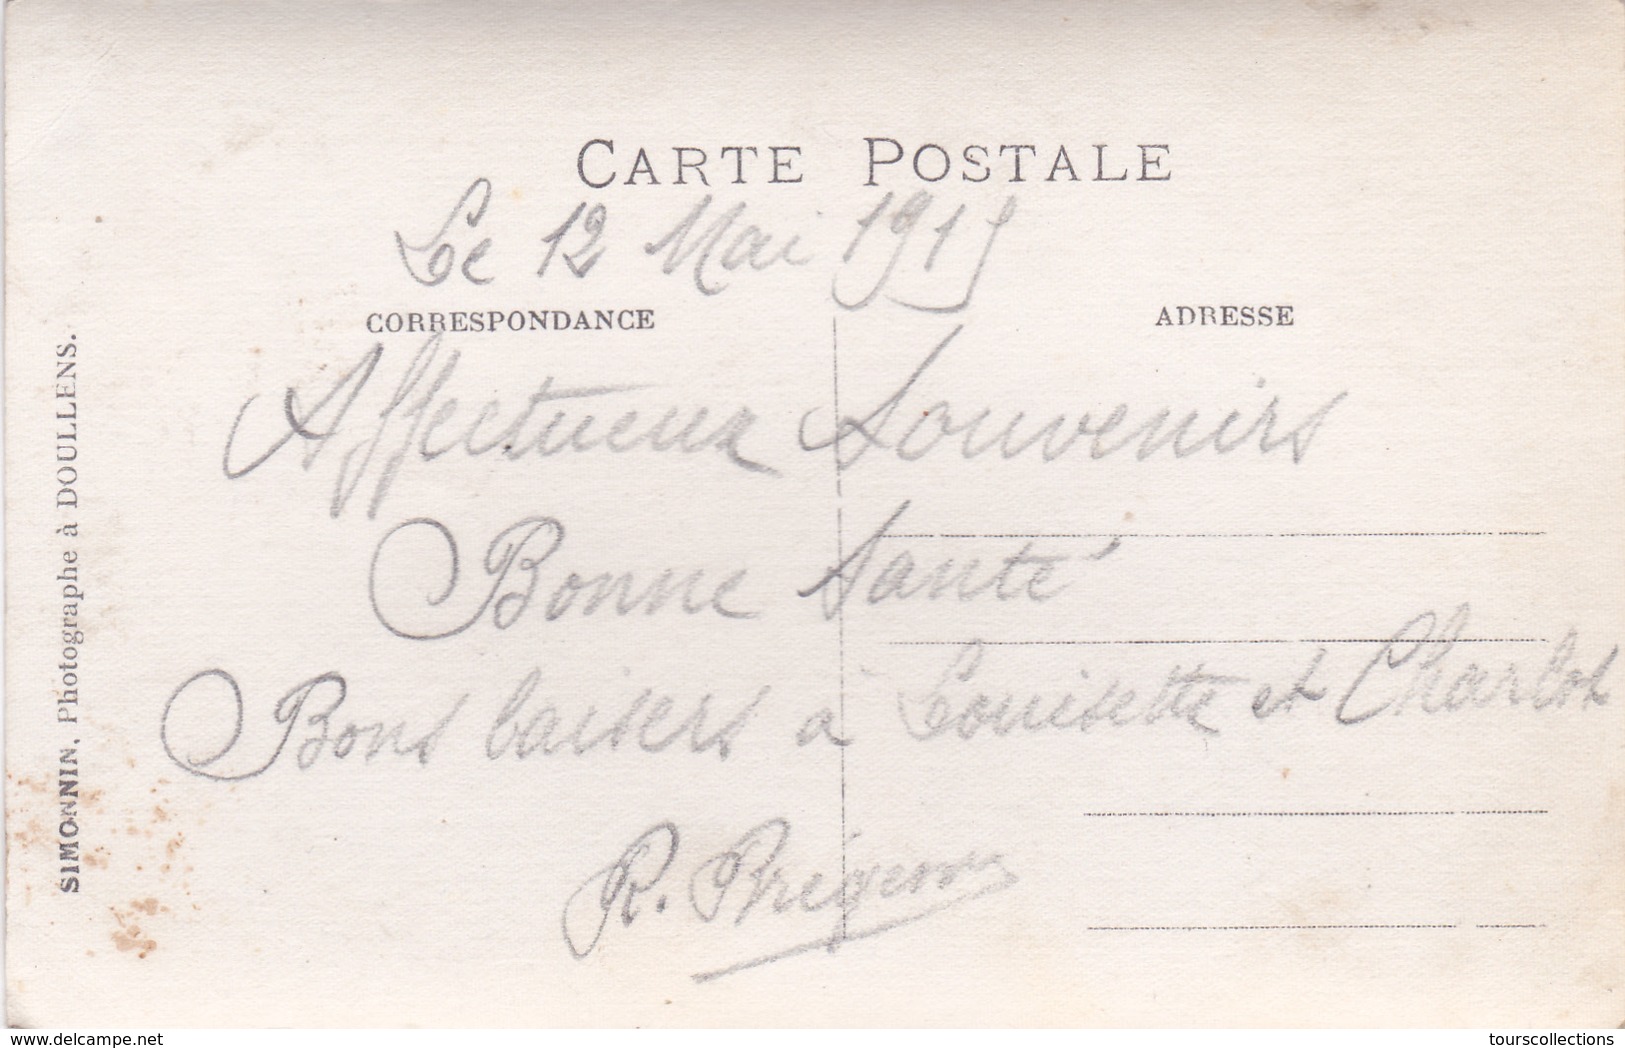 CARTE POSTALE
Le 12 Mai 1915
CORRESPONDANCE
ADRESSE
Affectueux Souvenirs
Bonne Santé
Bons baisers à Louisette et Charlot
R.
SIMONNIN, Photographe à DOULLENS.
www.delcampe.net
tourscollections